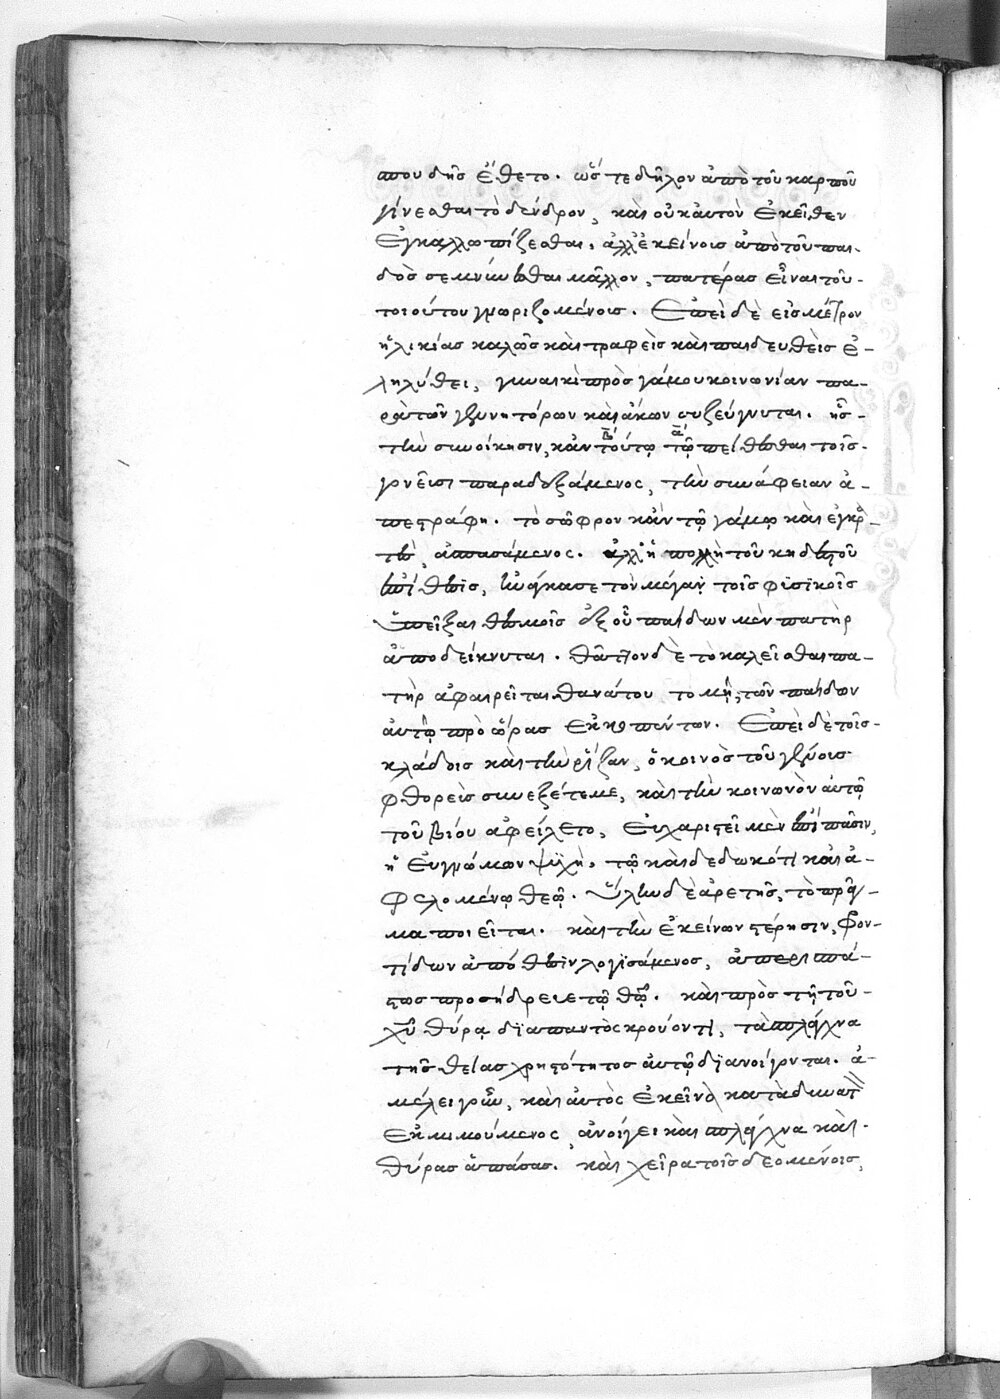 σπουδῆς ἔθετο. ὥστε δῆλον ἀπὸ τοῦ καρποῦ
γίνεσθαι τὸ δένδρον, καὶ οὐκ αὐτὸν ἐκεῖθεν
ἐγκαλλωπίζεσθαι, ἀλλ' ἐκείνοις ἀπὸ τοῦ παι-
δὸς σεμνύνεσθαι μᾶλλον, πατέρας εἶναι τοῦ
τοιούτου γνωριζομένοις. Ἐπεὶ δὲ εἰς μέτρον
ἡλικίας καλῶς καὶ τραφεὶς καὶ παιδευθεὶς ἐ-
ληλύθει, γυναικὶ πρὸς γάμου κοινωνίαν πα-
ρὰ τῶν γεννητόρων καὶ ἄκων συζεύγνυται. ἧς
τὴν συνοίκησιν, κἀν τούτῳ τῷ πείθεσθαι τοῖς
γονεῦσι παραδεξάμενος, τὴν συνάφειαν ἀ-
πεστράφη. τὸ σῶφρον κἀν τῷ γάμῳ καὶ ἐγκρα-
τὲς ἀσπασάμενος. ἀλλ' ἡ πολλὴ τοῦ κηδεστοῦ
ἐπίθεσις, ἠνάγκασε τὸν μέγαν τοῖς φυσικοῖς
ὑπεῖξαι θεσμοῖς ἐξ οὗ παίδων μὲν πατὴρ
ἀποδείκνυται. θᾶττον δὲ τὸ καλεῖσθαι πα-
τὴρ ἀφαιρεῖται θανάτου τομῇ, τῶν παίδων
αὐτῷ πρὸ ὥρας ἐκκοπέντων. Ἐπεὶ δὲ τοῖς
κλάδοις καὶ τὴν ῥίζαν, ὁ κοινὸς τοῦ γένους
φθορεὺς συνεξέτεμε, καὶ τὴν κοινωνὸν αὐτῷ
τοῦ βίου ἀφείλετο, εὐχαριστεῖ μὲν ἐπὶ πᾶσιν,
ἡ εὐγνώμων ψυχὴ, τῷ καὶ δεδωκότι καὶ ἀ-
φελομένῳ θεῷ. ὕλην δὲ ἀρετῆς, τὸ πρᾶγ-
μα ποιεῖται. καὶ τὴν ἐκείνων στέρησιν, φρον-
τίδων ἀπόθεσιν λογισάμενος, ἀπερισπά-
στως προσήδρευε τῷ θῶ. καὶ πρὸς τῇ τοῦ
χῦ θύρᾳ διαπαντὸς κρούοντι, τὰ σπλάγχνα
τῆς θείας χρηστότητος αὐτῷ διανοίγονται. ἀ-
μέλει γοῦν, καὶ αὐτὸς ἐκεῖνο κατὰ δυνατὸν
ἐκμιμούμενος, ἀνοίγει καὶ σπλάγχνα καὶ
θύρας ἁπάσας. καὶ χεῖρα τοῖς δεομένοις,